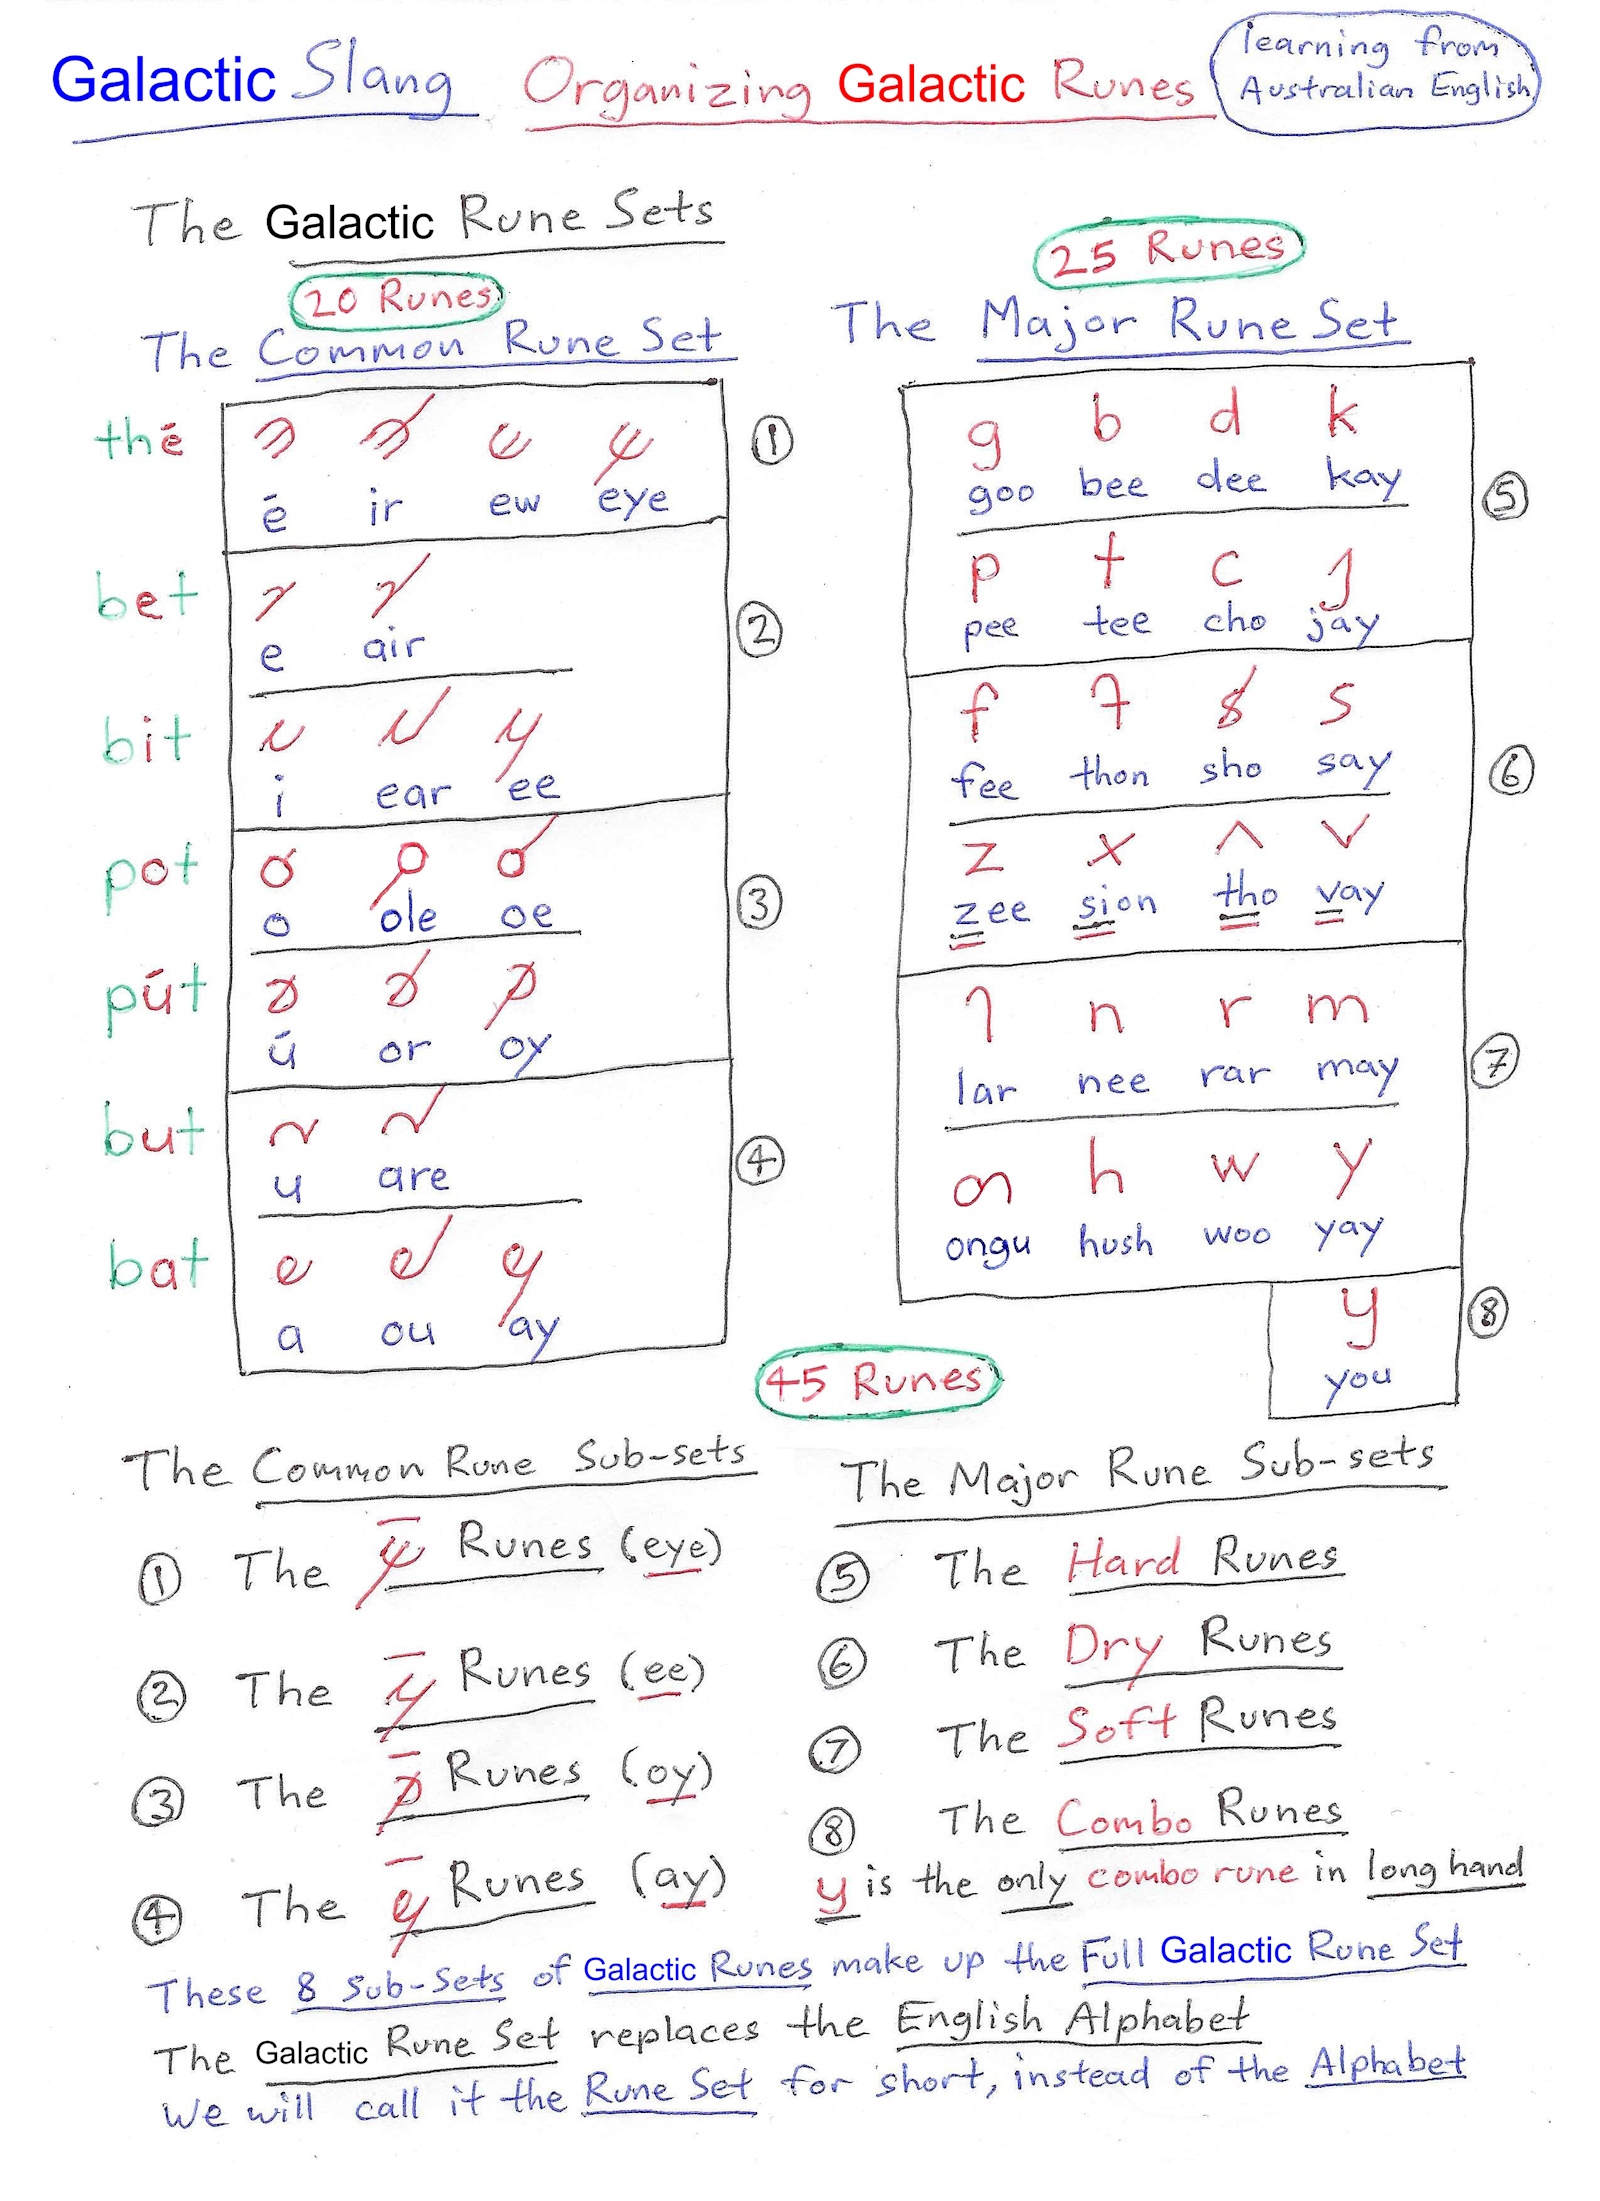 Galactic Slang Organizing Galactic Runes
learning from
Australian English
The Galactic Rune Sets
20 Runes
The Common Rune Set
thé
é ir ew eye
①
bet
e air
②
bit
i ear ee
pot
o ole oe
③
pút
ú or oy
but
u are
④
bat
a ou ay
25 Runes
The Major Rune Set
g b d k
goo bee dee kay
⑤
p t c j
pee tee cho jay
f s
fee thon sho say
⑥
z x ^ v
zee sion tho vay
n r m
lar nee rar may
⑦
h w y
ongu hush woo yay
y
you
⑧
45 Runes
The Common Rune Sub-sets
① The Runes (eye)
② The Runes (ee)
③ The Runes (oy)
④ The Runes (ay)
The Major Rune Sub-sets
⑤ The Hard Runes
⑥ The Dry Runes
⑦ The Soft Runes
⑧ The Combo Runes
y is the only combo rune in long hand
These 8 Sub-Sets of Galactic Runes make up the Full Galactic Rune Set
The Galactic Rune Set replaces the English Alphabet
We will call it the Rune Set for short, instead of the Alphabet